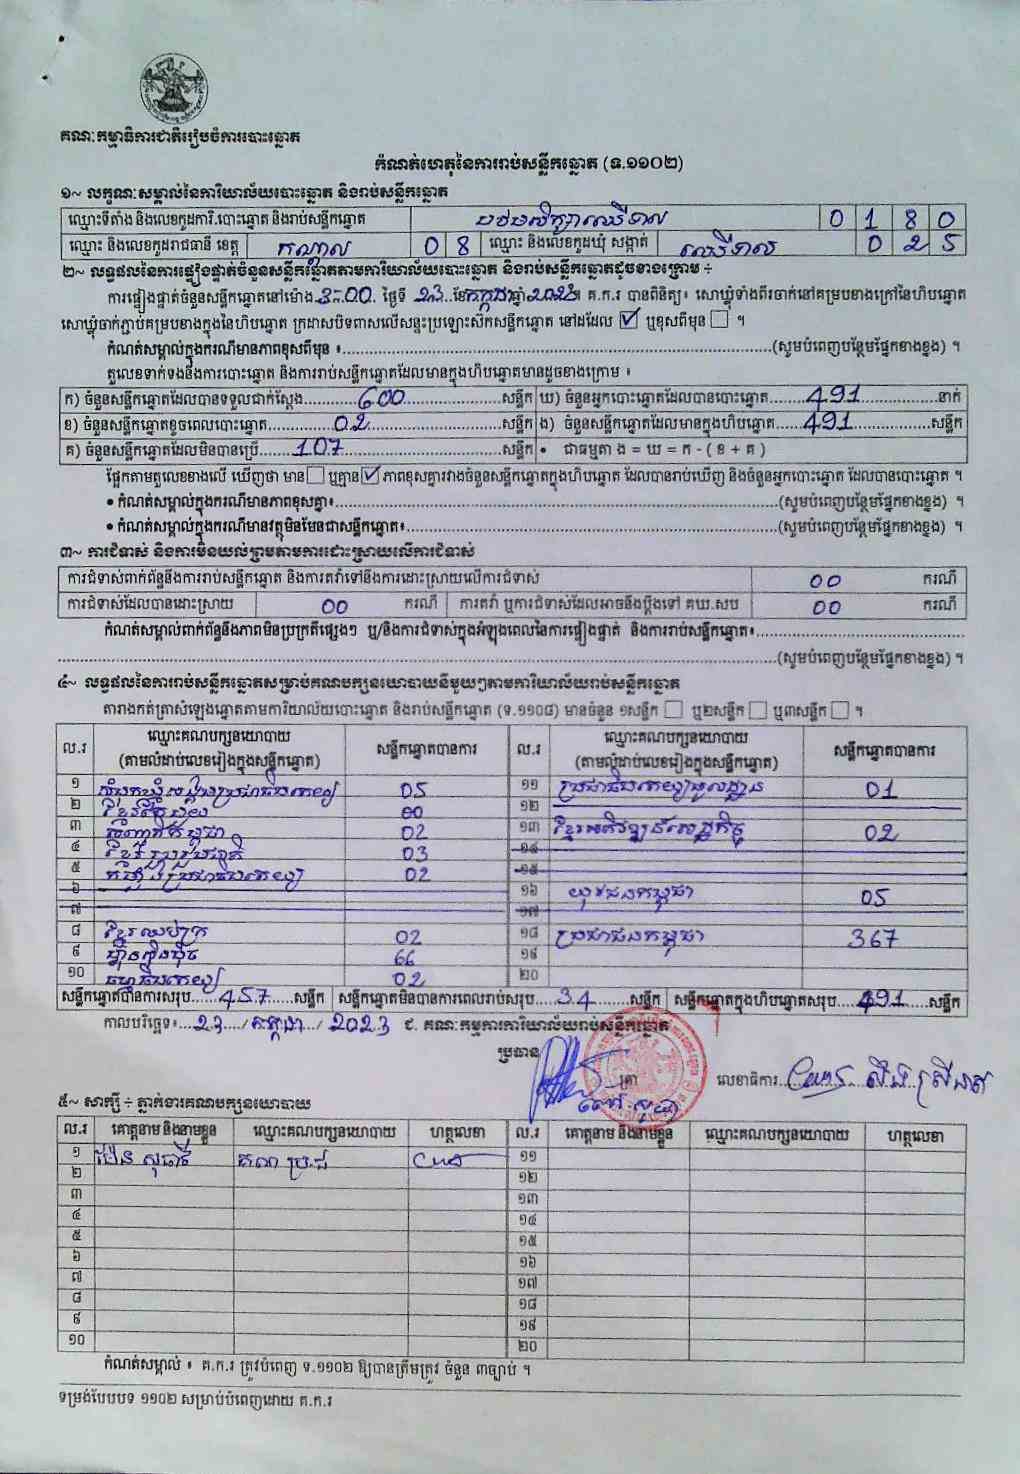 គណៈកម្មាធិការជាតិរៀបចំការបោះឆ្នោត
កំណត់ហេតុនៃការរាប់សន្លឹកឆ្នោត (ទ.១១០២)
១~ លក្ខណៈសម្គាល់នៃការិយាល័យបោះឆ្នោត និងរាប់សន្លឹកឆ្នោត
ឈ្មោះទីតាំង និងលេខកូដការិ.បោះឆ្នោត និងរាប់សន្លឹកឆ្នោត 0 1 8 0
ឈ្មោះ និងលេខកូដរាជធានី ខេត្ត កណ្តាល 0 8 ឈ្មោះ និងលេខកូដឃុំ សង្កាត់ ឈើទាល 0 2 5
២~ លទ្ធផលនៃការផ្ទៀងផ្ទាត់ចំនួនសន្លឹកឆ្នោតតាមការិយាល័យបោះឆ្នោត និងរាប់សន្លឹកឆ្នោតដូចខាងក្រោម ÷
ការផ្ទៀងផ្ទាត់ចំនួនសន្លឹកឆ្នោតនៅម៉ោង 3:00 ថ្ងៃទី 23 ខែ កក្កដា ឆ្នាំ 2023 គ.ក.រ បានពិនិត្យ៖ សោឃ្មុំទាំងពីរចាក់នៅគម្របខាងក្រៅនៃហិបឆ្នោត
សោឃ្មុំចាក់ភ្ជាប់គម្របខាងក្នុងនៃហិបឆ្នោត ក្រដាសបិទពាសលើសន្ទះប្រឡោះស៊កសន្លឹកឆ្នោត នៅដដែល ☑ ឬខុសពីមុន ☐ ។
កំណត់សម្គាល់ក្នុងករណីមានភាពខុសពីមុន ៖ (សូមបំពេញបន្ថែមផ្នែកខាងខ្នង) ។
តួលេខទាក់ទងនឹងការបោះឆ្នោត និងការរាប់សន្លឹកឆ្នោតដែលមានក្នុងហិបឆ្នោតមានដូចខាងក្រោម ៖
ក) ចំនួនសន្លឹកឆ្នោតដែលបានទទួលជាក់ស្តែង 600 សន្លឹក ឃ) ចំនួនអ្នកបោះឆ្នោតដែលបានបោះឆ្នោត 491 នាក់
ខ) ចំនួនសន្លឹកឆ្នោតខូចពេលបោះឆ្នោត 02 សន្លឹក ង) ចំនួនសន្លឹកឆ្នោតដែលមានក្នុងហិបឆ្នោត 491 សន្លឹក
គ) ចំនួនសន្លឹកឆ្នោតដែលមិនបានប្រើ 107 សន្លឹក • ជាធម្មតា ង = ឃ = ក - ( ខ + គ )
ផ្អែកតាមតួលេខខាងលើ ឃើញថា មាន ☐ ឬគ្មាន ☑ ភាពខុសគ្នារវាងចំនួនសន្លឹកឆ្នោតក្នុងហិបឆ្នោត ដែលបានរាប់ឃើញ និងចំនួនអ្នកបោះឆ្នោត ដែលបានបោះឆ្នោត ។
• កំណត់សម្គាល់ក្នុងករណីមានភាពខុសគ្នា៖ (សូមបំពេញបន្ថែមផ្នែកខាងខ្នង) ។
• កំណត់សម្គាល់ក្នុងករណីមានវត្ថុមិនមែនជាសន្លឹកឆ្នោត៖ (សូមបំពេញបន្ថែមផ្នែកខាងខ្នង) ។
៣~ ការជំទាស់ និងការមិនយល់ព្រមតាមការដោះស្រាយលើការជំទាស់
ការជំទាស់ពាក់ព័ន្ធនឹងការរាប់សន្លឹកឆ្នោត និងការតវ៉ាទៅនឹងការដោះស្រាយលើការជំទាស់ 00 ករណី
ការជំទាស់ដែលបានដោះស្រាយ 00 ករណី ការតវ៉ា ឬការជំទាស់ដែលអាចនឹងប្តឹងទៅ គឃ.សប 00 ករណី
កំណត់សម្គាល់ពាក់ព័ន្ធនឹងភាពមិនប្រក្រតីផ្សេងៗ ឬ/និងការជំទាស់ក្នុងអំឡុងពេលនៃការផ្ទៀងផ្ទាត់ និងការរាប់សន្លឹកឆ្នោត៖
(សូមបំពេញបន្ថែមផ្នែកខាងខ្នង) ។
៤~ លទ្ធផលនៃការរាប់សន្លឹកឆ្នោតសម្រាប់គណបក្សនយោបាយនីមួយៗតាមការិយាល័យរាប់សន្លឹកឆ្នោត
តារាងកត់ត្រាសំឡេងឆ្នោតតាមការិយាល័យបោះឆ្នោត និងរាប់សន្លឹកឆ្នោត (ទ.១១០៨) មានចំនួន ១សន្លឹក ☐ ឬ២សន្លឹក ☐ ឬ៣សន្លឹក ☐ ។
ល.រ ឈ្មោះគណបក្សនយោបាយ (តាមលំដាប់លេខរៀងក្នុងសន្លឹកឆ្នោត) សន្លឹកឆ្នោតបានការ ល.រ ឈ្មោះគណបក្សនយោបាយ (តាមលំដាប់លេខរៀងក្នុងសន្លឹកឆ្នោត) សន្លឹកឆ្នោតបានការ
១ សំបុកឃ្មុំសង្គមប្រជាធិបតេយ្យ 05 ១១ ប្រជាធិបតេយ្យមូលដ្ឋាន 01
២ 00 ១២
៣ 02 ១៣ ខ្មែរអភិវឌ្ឍន៍សេដ្ឋកិច្ច 02
៤ ខ្មែររួបរួមជាតិ 03 ១៤
៥ កម្លាំងប្រជាធិបតេយ្យ 02 ១៥
៦ ១៦ យុវជនកម្ពុជា 05
៧ ១៧
៨ ខ្មែរឈប់ក្រ 02 ១៨ ប្រជាជនកម្ពុជា 367
៩ ហ៊្វុនស៊ិនប៉ិច 66 ១៩
១០ ធម្មាធិបតេយ្យ 02 ២០
សន្លឹកឆ្នោតបានការសរុប 457 សន្លឹក សន្លឹកឆ្នោតមិនបានការពេលរាប់សរុប 34 សន្លឹក សន្លឹកឆ្នោតក្នុងហិបឆ្នោតសរុប 491 សន្លឹក
កាលបរិច្ឆេទ៖ 23 / កក្កដា / 2023 ជ. គណៈកម្មការការិយាល័យរាប់សន្លឹកឆ្នោត
ប្រធាន
ត្រា លេខាធិការ
៥~ សាក្សី ÷ ភ្នាក់ងារគណបក្សនយោបាយ
ល.រ គោត្តនាម និងនាមខ្លួន ឈ្មោះគណបក្សនយោបាយ ហត្ថលេខា ល.រ គោត្តនាម និងនាមខ្លួន ឈ្មោះគណបក្សនយោបាយ ហត្ថលេខា
១ គណ ប្រ.ជ ១១
២ ១២
៣ ១៣
៤ ១៤
៥ ១៥
៦ ១៦
៧ ១៧
៨ ១៨
៩ ១៩
១០ ២០
កំណត់សម្គាល់ ៖ គ.ក.រ ត្រូវបំពេញ ទ.១១០២ ឱ្យបានត្រឹមត្រូវ ចំនួន ៣ច្បាប់ ។
ទម្រង់បែបបទ ១១០២ សម្រាប់បំពេញដោយ គ.ក.រ